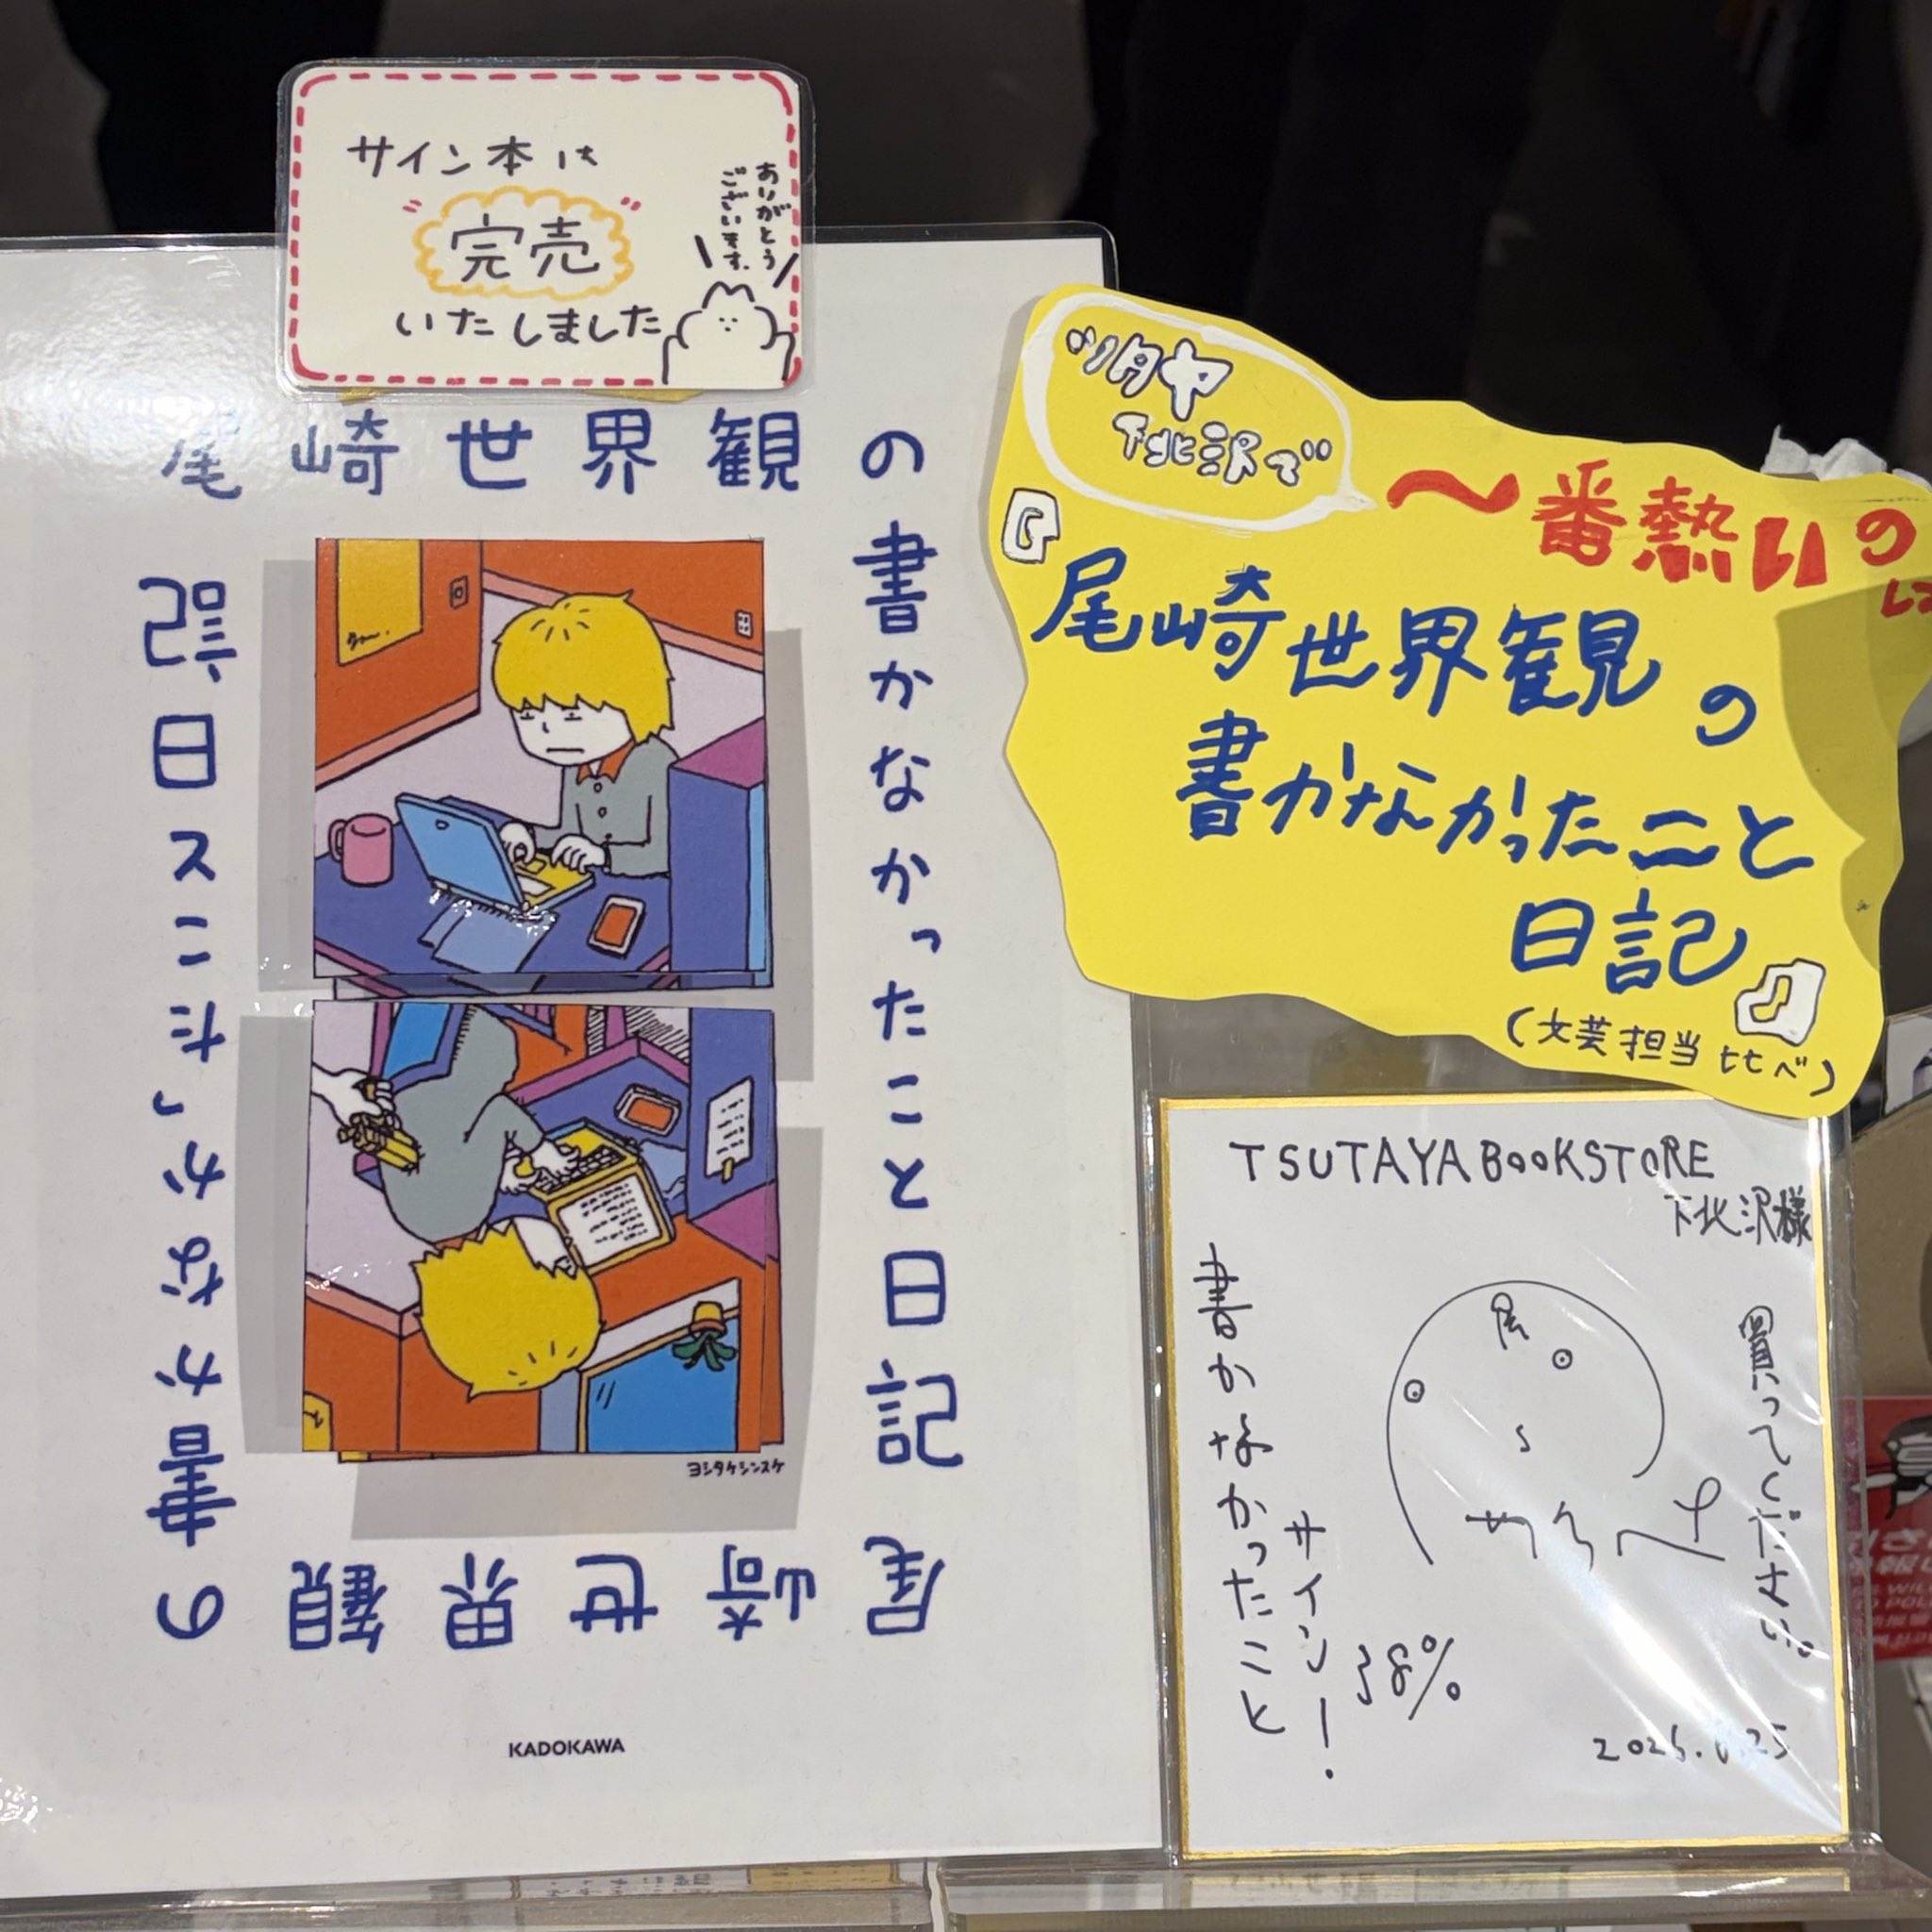 サイン本は
完売
いたしました
ありがとう
ございます。
尾崎世界観の
書かなかったこと日記
尾崎世界観の
書かなかったこと日記
ヨシタケシンスケ
KADOKAWA
ツタヤ
下北沢で
一番熱いの
『尾崎世界観の
書かなかったこと
日記』
(文芸担当比べ)
TSUTAYA BOOKSTORE
下北沢様
買ってください。
尾
書かなかったこと
サイン!
38%